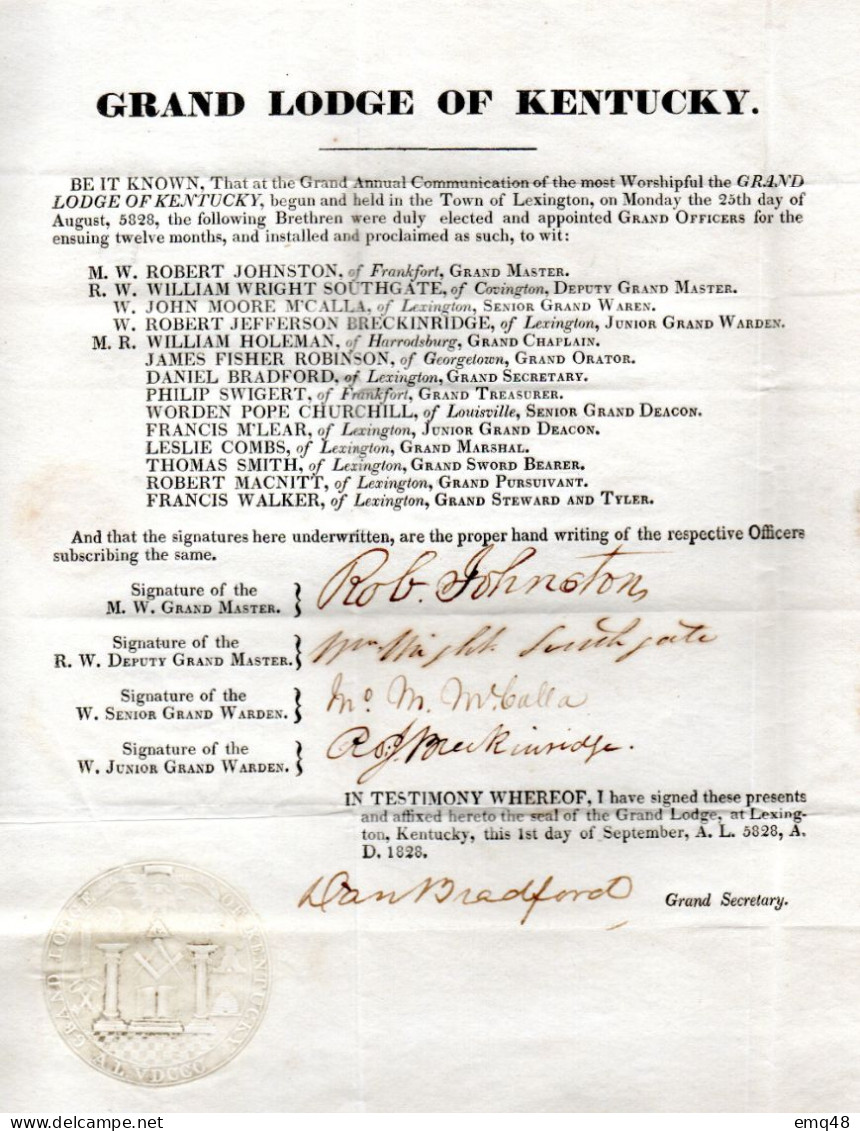 GRAND LODGE OF KENTUCKY.
BE IT KNOWN, That at the Grand Annual Communication of the most Worshipful the GRAND
LODGE OF KENTUCKY, begun and held in the Town of Lexington, on Monday the 25th day of
August, 5828, the following Brethren were duly elected and appointed GRAND OFFICERS for the
ensuing twelve months, and installed and proclaimed as such, to wit:
M. W. ROBERT JOHNSTON, of Frankfort, GRAND MASTER.
R. W. WILLIAM WRIGHT SOUTHGATE, of Covington, DEPUTY GRAND MASTER.
W. JOHN MOORE M'CALLA, of Lexington, SENIOR GRAND WAREN.
W. ROBERT JEFFERSON BRECKINRIDGE, of Lexington, JUNIOR GRAND WARDEN.
M. R. WILLIAM HOLEMAN, of Harrodsburg, GRAND CHAPLAIN.
JAMES FISHER ROBINSON, of Georgetown, GRAND ORATOR.
DANIEL BRADFORD, of Lexington, GRAND SECRETARY.
PHILIP SWIGERT, of Frankfort, GRAND TREASURER.
WORDEN POPE CHURCHILL, of Louisville, SENIOR GRAND DEACON.
FRANCIS M'LEAR, of Lexington, JUNIOR GRAND DEACON.
LESLIE COMBS, of Lexington, GRAND MARSHAL.
THOMAS SMITH, of Lexington, GRAND SWORD BEARER.
ROBERT MACNITT, of Lexington, GRAND PURSUIVANT.
FRANCIS WALKER, of Lexington, GRAND STEWARD AND TYLER.
And that the signatures here underwritten, are the proper hand writing of the respective Officers
subscribing the same.
Signature of the
M. W. GRAND MASTER. } Rob. Johnston
Signature of the
R. W. DEPUTY GRAND MASTER. } Wm Wright Southgate
Signature of the
W. SENIOR GRAND WARDEN. } Jno M. McCalla
Signature of the
W. JUNIOR GRAND WARDEN. } Ro. J. Breckinridge.
IN TESTIMONY WHEREOF, I have signed these presents
and affixed hereto the seal of the Grand Lodge, at Lexing-
ton, Kentucky, this 1st day of September, A. L. 5828, A.
D. 1828.
Dan Bradford Grand Secretary.
GRAND LODGE OF KENTUCKY
A L VDCCC
emq48